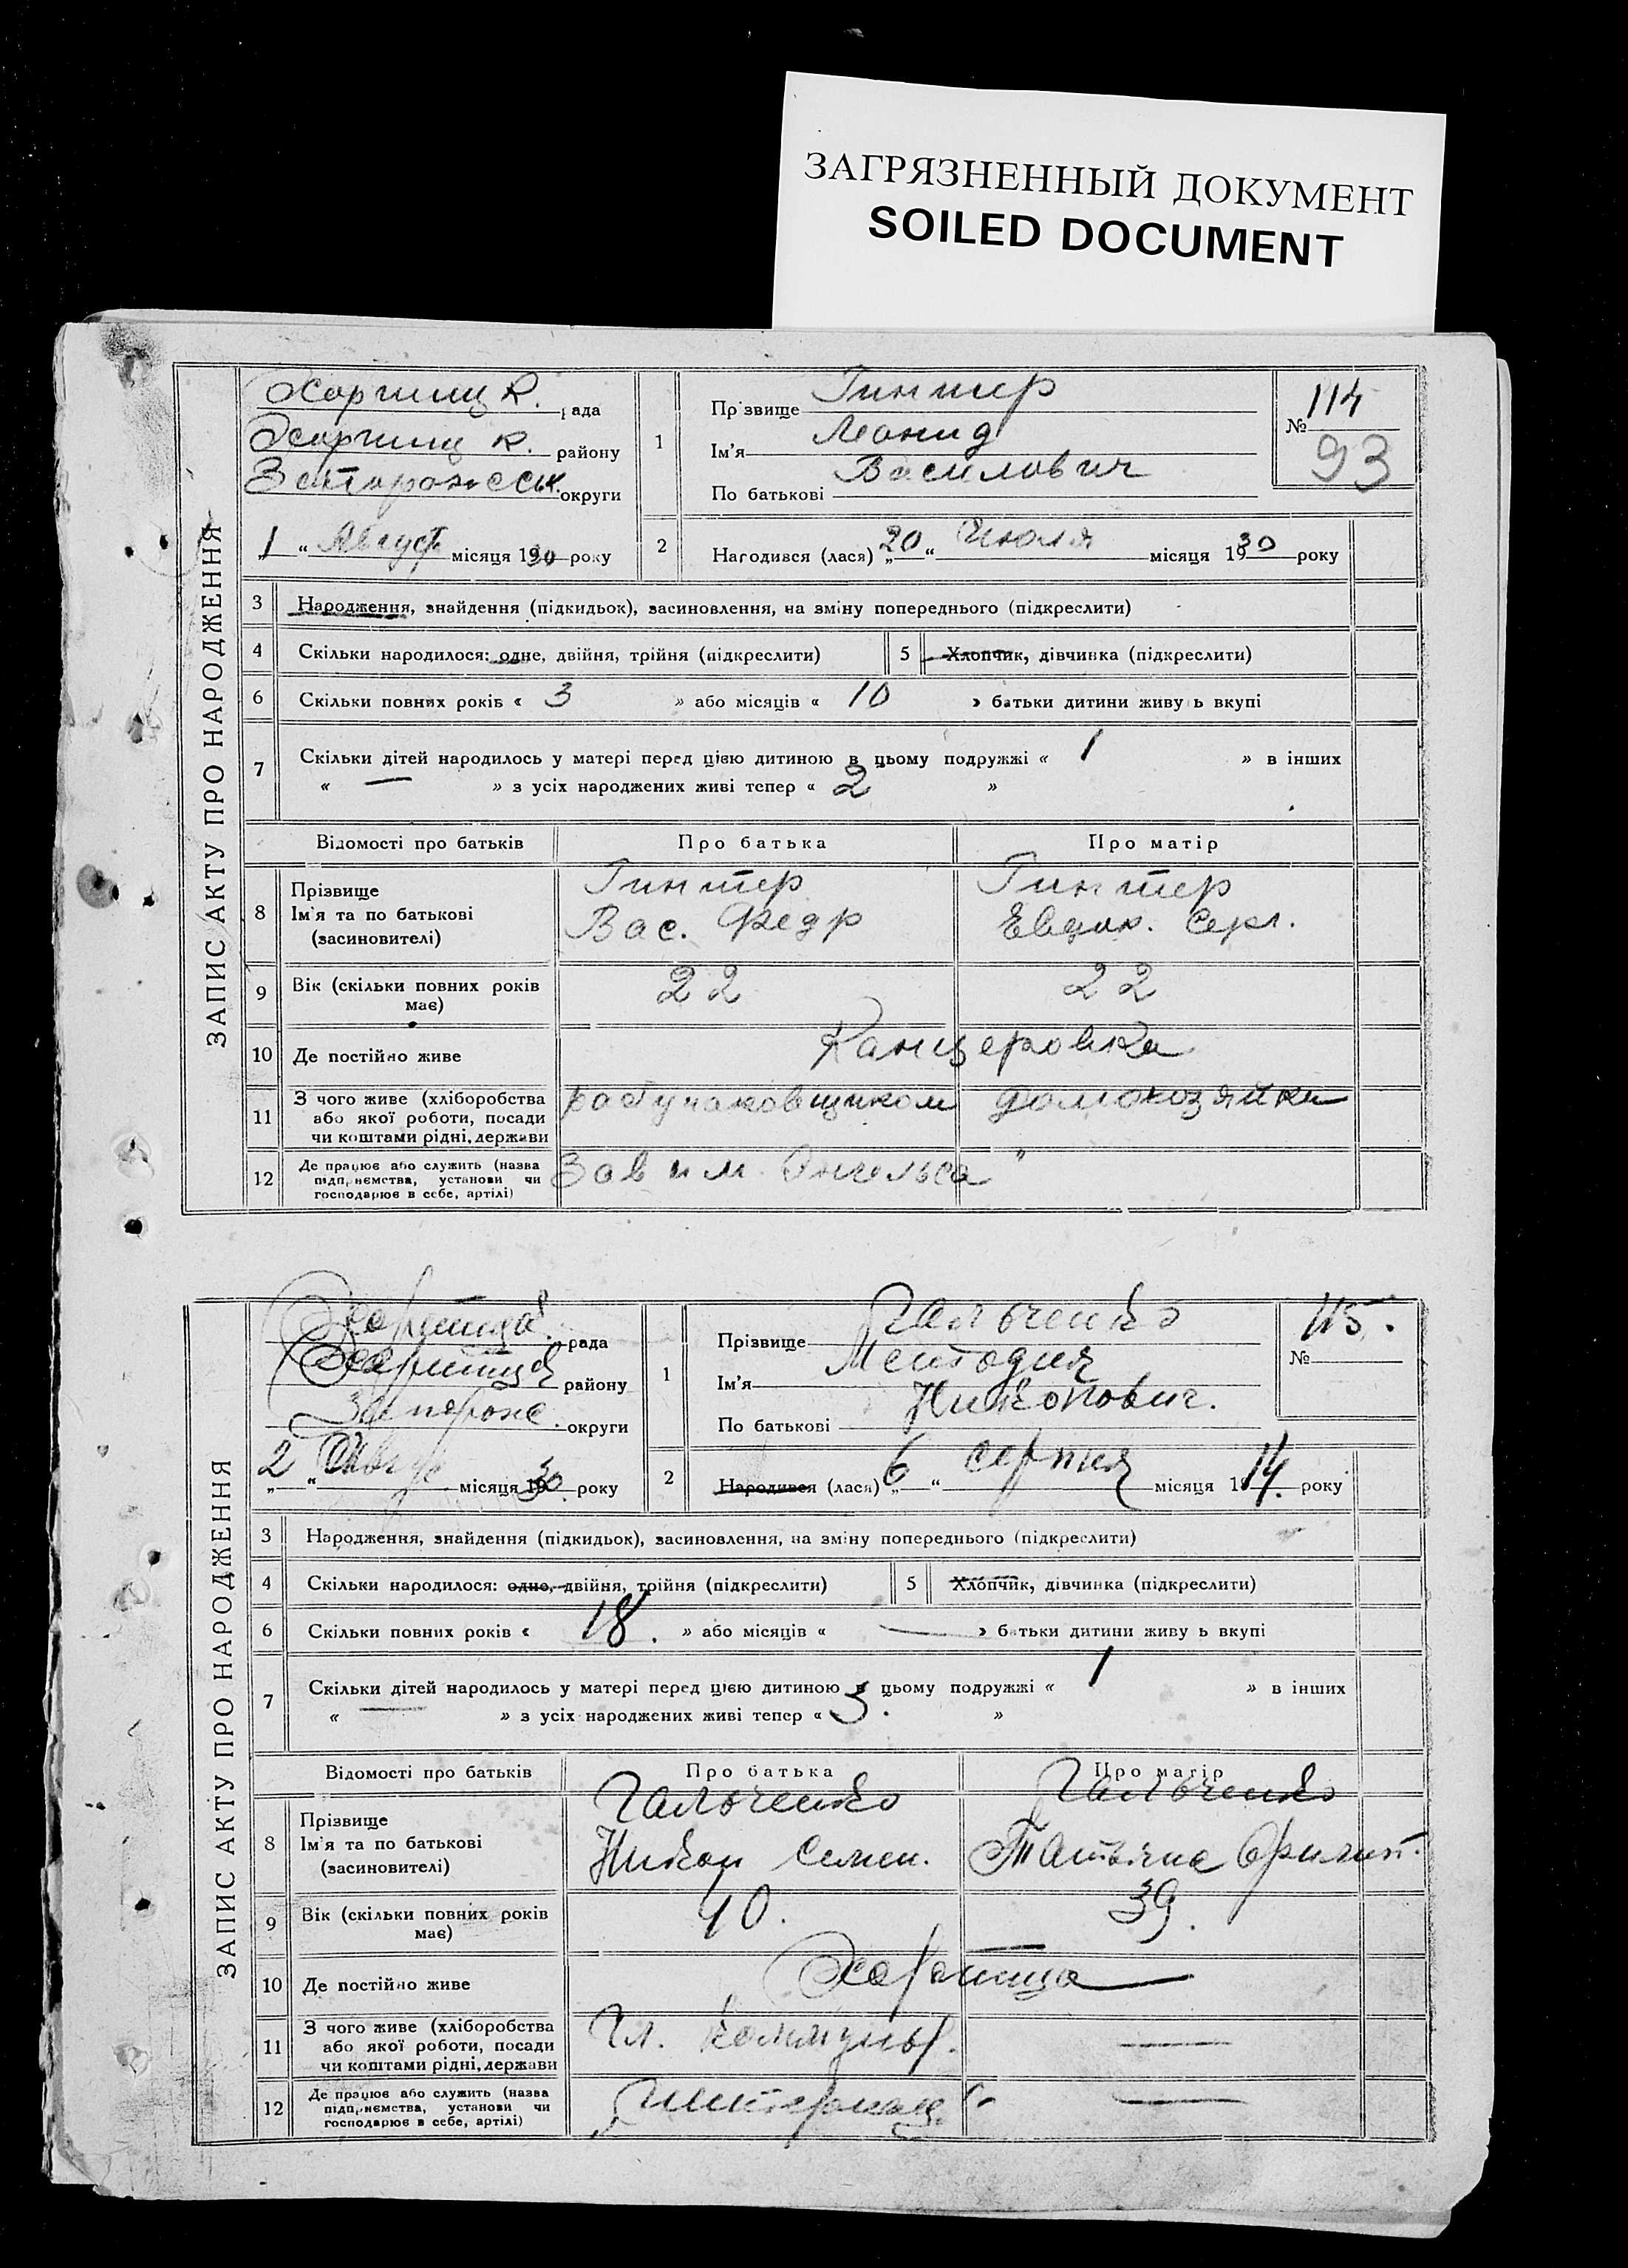 ЗАГРЯЗНЕННЫЙ ДОКУМЕНТ
SOILED DOCUMENT
ЗАПИС АКТУ ПРО НАРОДЖЕННЯ
Хортицк. рада
Хортицк. району
округи
1 „ Август місяця 1930 року
1
Прізвище Гинтер
Ім'я Леонид
По батькові Василович
№ 114
93
2
Народився (лася) „20 “ Июля місяця 1930 року
3 Народження, знайдення (підкидьок), засиновлення, на зміну попереднього (підкреслити)
4 Скільки народилося: одне, двійня, трійня (підкреслити)
5 Хлопчик, дівчинка (підкреслити)
6 Скільки повних років « 3 » або місяців « 10 » батьки дитини живуть вкупі
7 Скільки дітей народилось у матері перед цією дитиною в цьому подружжі « 1 » в інших
« — » з усіх народжених живі тепер « 2 »
Відомості про батьків Про батька Про матір
8 Прізвище Гинтер Гинтер
Ім'я та по батькові Вас. Федр Евдок. Серг.
(засиновителі)
9 Вік (скільки повних років має) 22 22
10 Де постійно живе Канцеровка
11 З чого живе (хліборобства або якої роботи, посади чи коштами рідні, держави домохозяйка
12 Де працює або служить (назва підприємства, установи чи господарює в себе, артілі) Зав им. Энгельса "
ЗАПИС АКТУ ПРО НАРОДЖЕННЯ
Хортица рада
Хортица району
Запорож. округи
2 „ “ місяця 1930 року
1
Прізвище Гальченко
Ім'я Ментодия
По батькові Никонович.
№ 115.
2
Народився (лася) „6 “ серпня місяця 1914. року
3 Народження, знайдення (підкидьок), засиновлення, на зміну попереднього (підкреслити)
4 Скільки народилося: одно, двійня, трійня (підкреслити)
5 Хлопчик, дівчинка (підкреслити)
6 Скільки повних років « 18. » або місяців « — » батьки дитини живуть вкупі
7 Скільки дітей народилось у матері перед цією дитиною в цьому подружжі « 1 » в інших
« — » з усіх народжених живі тепер « 3. »
Відомості про батьків Про батька Про матір
8 Прізвище Гальченко Гальченко
Ім'я та по батькові Никон Семен. Татьяна Филип.
(засиновителі)
9 Вік (скільки повних років має) 40. 39.
10 Де постійно живе Хортица
11 З чого живе (хліборобства або якої роботи, посади чи коштами рідні, держави Чл. Коммуны. —
12 Де працює або служить (назва підприємства, установи чи господарює в себе, артілі) —